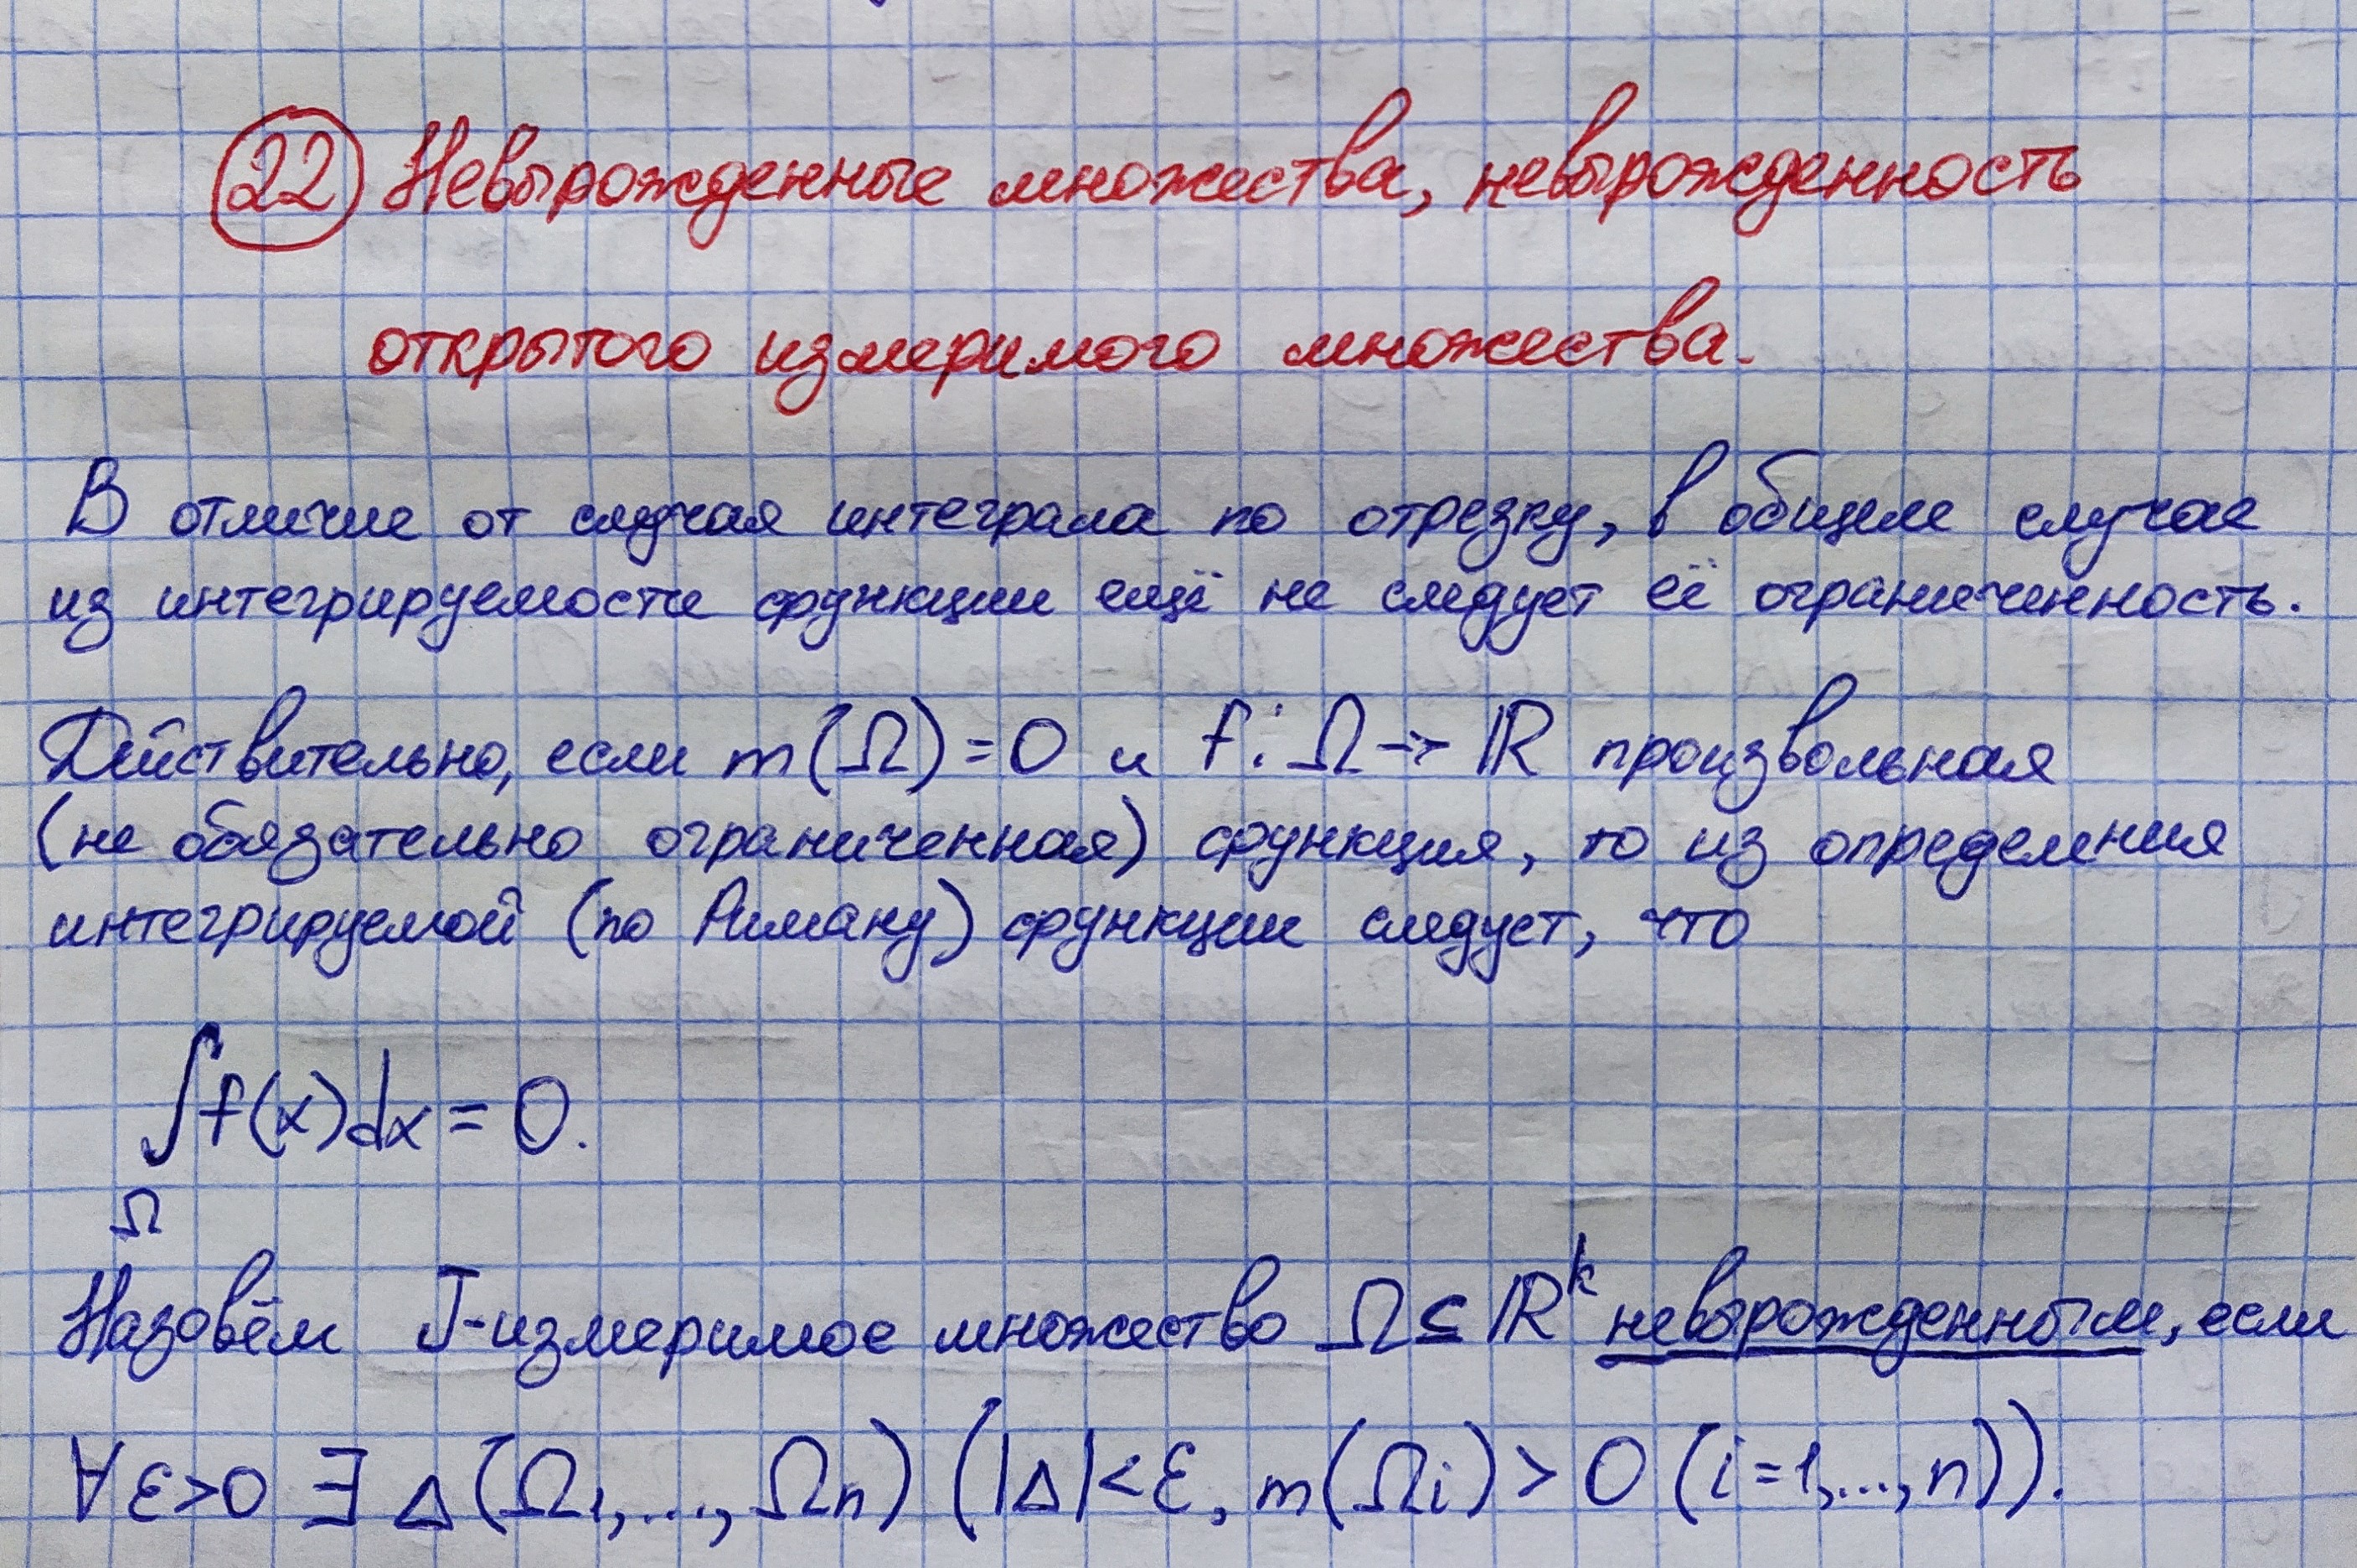 22 Невырожденные множества, невырожденность
открытого измеримого множества.
В отличие от случая интеграла по отрезку, в общем случае
из интегрируемости функции ещё не следует её ограниченность.
Действительно, если m(Ω)=0 и f: Ω→ℝ произвольная
(не обязательно ограниченная) функция, то из определения
интегрируемой (по Риману) функции следует, что
∫f(x)dx = 0.
Ω
Назовём J-измеримое множество Ω⊆ℝᵏ невырожденным, если
∀ε>0 ∃ Δ(Ω₁,...,Ωₙ) (|Δ|<ε, m(Ωᵢ)>0 (i=1,...,n)).